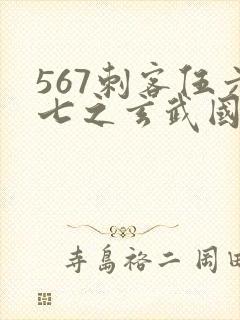 567刺客伍六
七之玄武國
寺島裕二 岡田